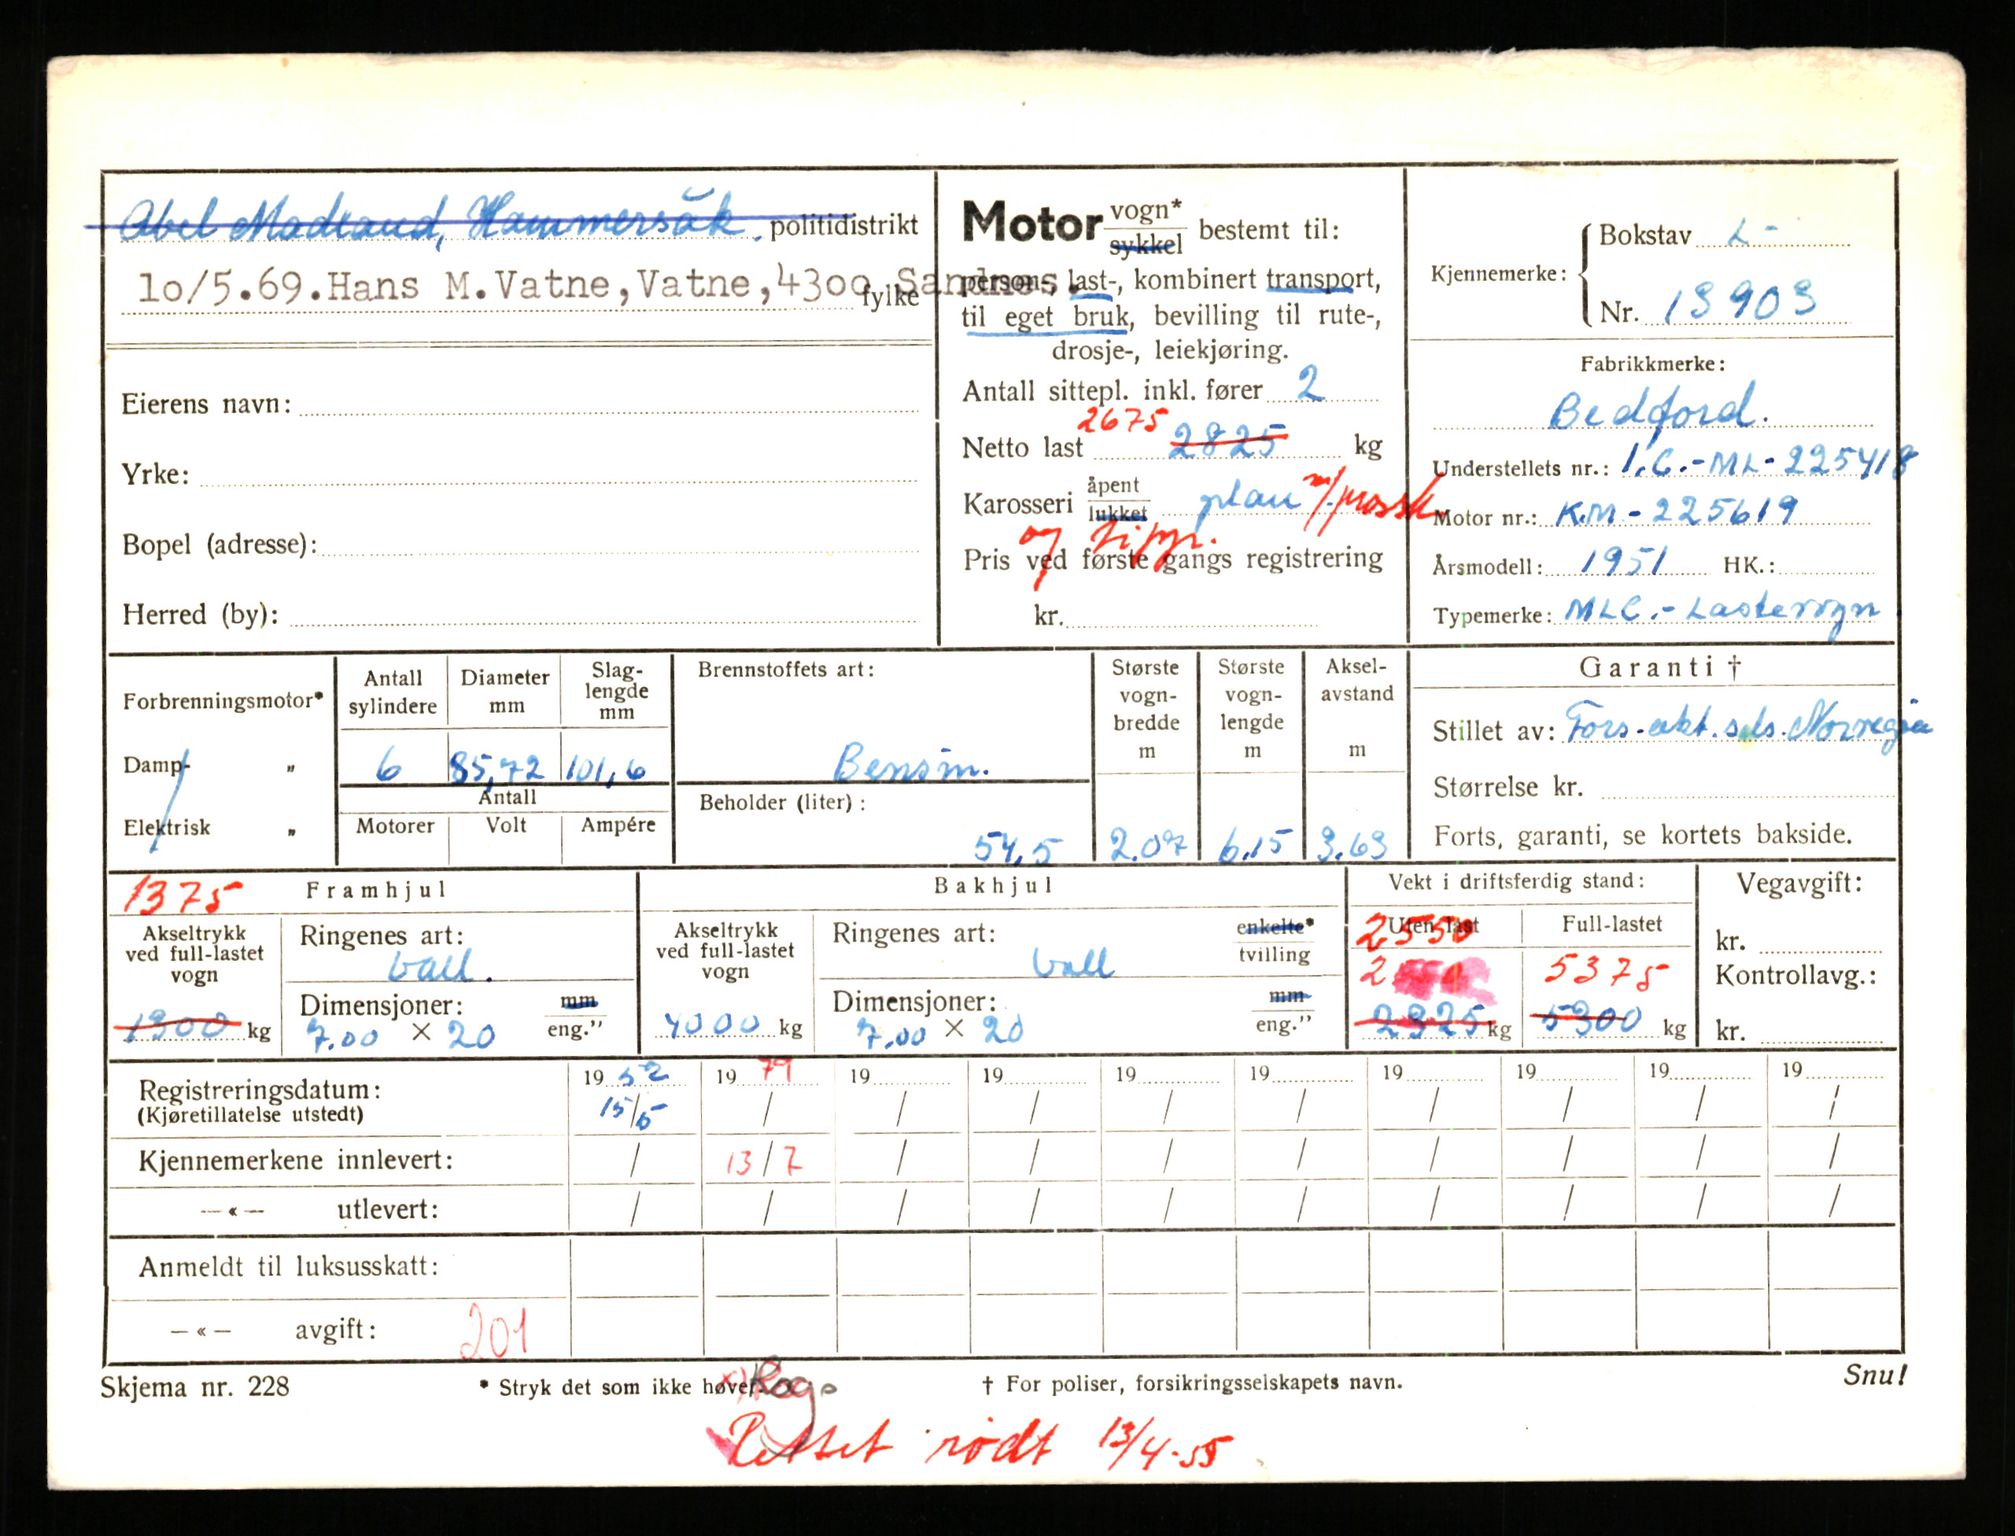 Abel Madland, Hammersåk. politidistrikt
10/5.69.Hans M.Vatne,Vatne,4300 Sandnes. fylke
Eierens navn:
Yrke:
Bopel (adresse):
Herred (by):
Motor vogn* sykkel bestemt til:
person-, last-, kombinert transport,
til eget bruk, bevilling til rute-,
drosje-, leiekjøring.
Antall sittepl. inkl. fører 2
2675
Netto last 2825 kg
Karosseri åpent lukket plan m/
og tipp.
Pris ved første gangs registrering
kr.
Kjennemerke: Bokstav L-
Nr. 13903
Fabrikkmerke:
Bedford.
Understellets nr.: I.C.-ML-225418
Motor nr.: KM-225619
Årsmodell: 1951 HK.:
Typemerke: MLC.- Lastevogn
Forbrenningsmotor*
Damp- „
Elektrisk „
Antall sylindere
Diameter mm
Slag-lengde mm
6 85,72 101,6
Antall
Motorer Volt Ampére
Brennstoffets art:
Bensin.
Beholder (liter):
54,5
Største vogn-bredde m
2.07
Største vogn-lengde m
6.15
Aksel-avstand m
3.63
Garanti †
Stillet av: Fors.akt.sels.Norregia
Størrelse kr.
Forts, garanti, se kortets bakside.
1375 Framhjul
Akseltrykk ved full-lastet vogn
1300 kg
Ringenes art:
ball.
Dimensjoner: mm
7.00 × 20 eng.”
Bakhjul
Akseltrykk ved full-lastet vogn
4000 kg
Ringenes art: enkelte* tvilling
ball
Dimensjoner: mm
7.00 × 20 eng.”
Vekt i driftsferdig stand:
Uten last Full-lastet
2550
5375
2325 kg 5300 kg
Vegavgift:
kr.
Kontrollavg.:
kr.
Registreringsdatum: 19 52 19 79 19 19 19 19 19 19 19 19
(Kjøretillatelse utstedt) 15/5 / / / / / / / / /
Kjennemerkene innlevert: / 13/7 / / / / / / / /
—«— utlevert: / / / / / / / / / /
Anmeldt til luksusskatt:
—«— avgift: 201
Skjema nr. 228 * Stryk det som ikke høver. x) Rog. † For poliser, forsikringsselskapets navn. Snu!
Rettet rødt 13/4-55